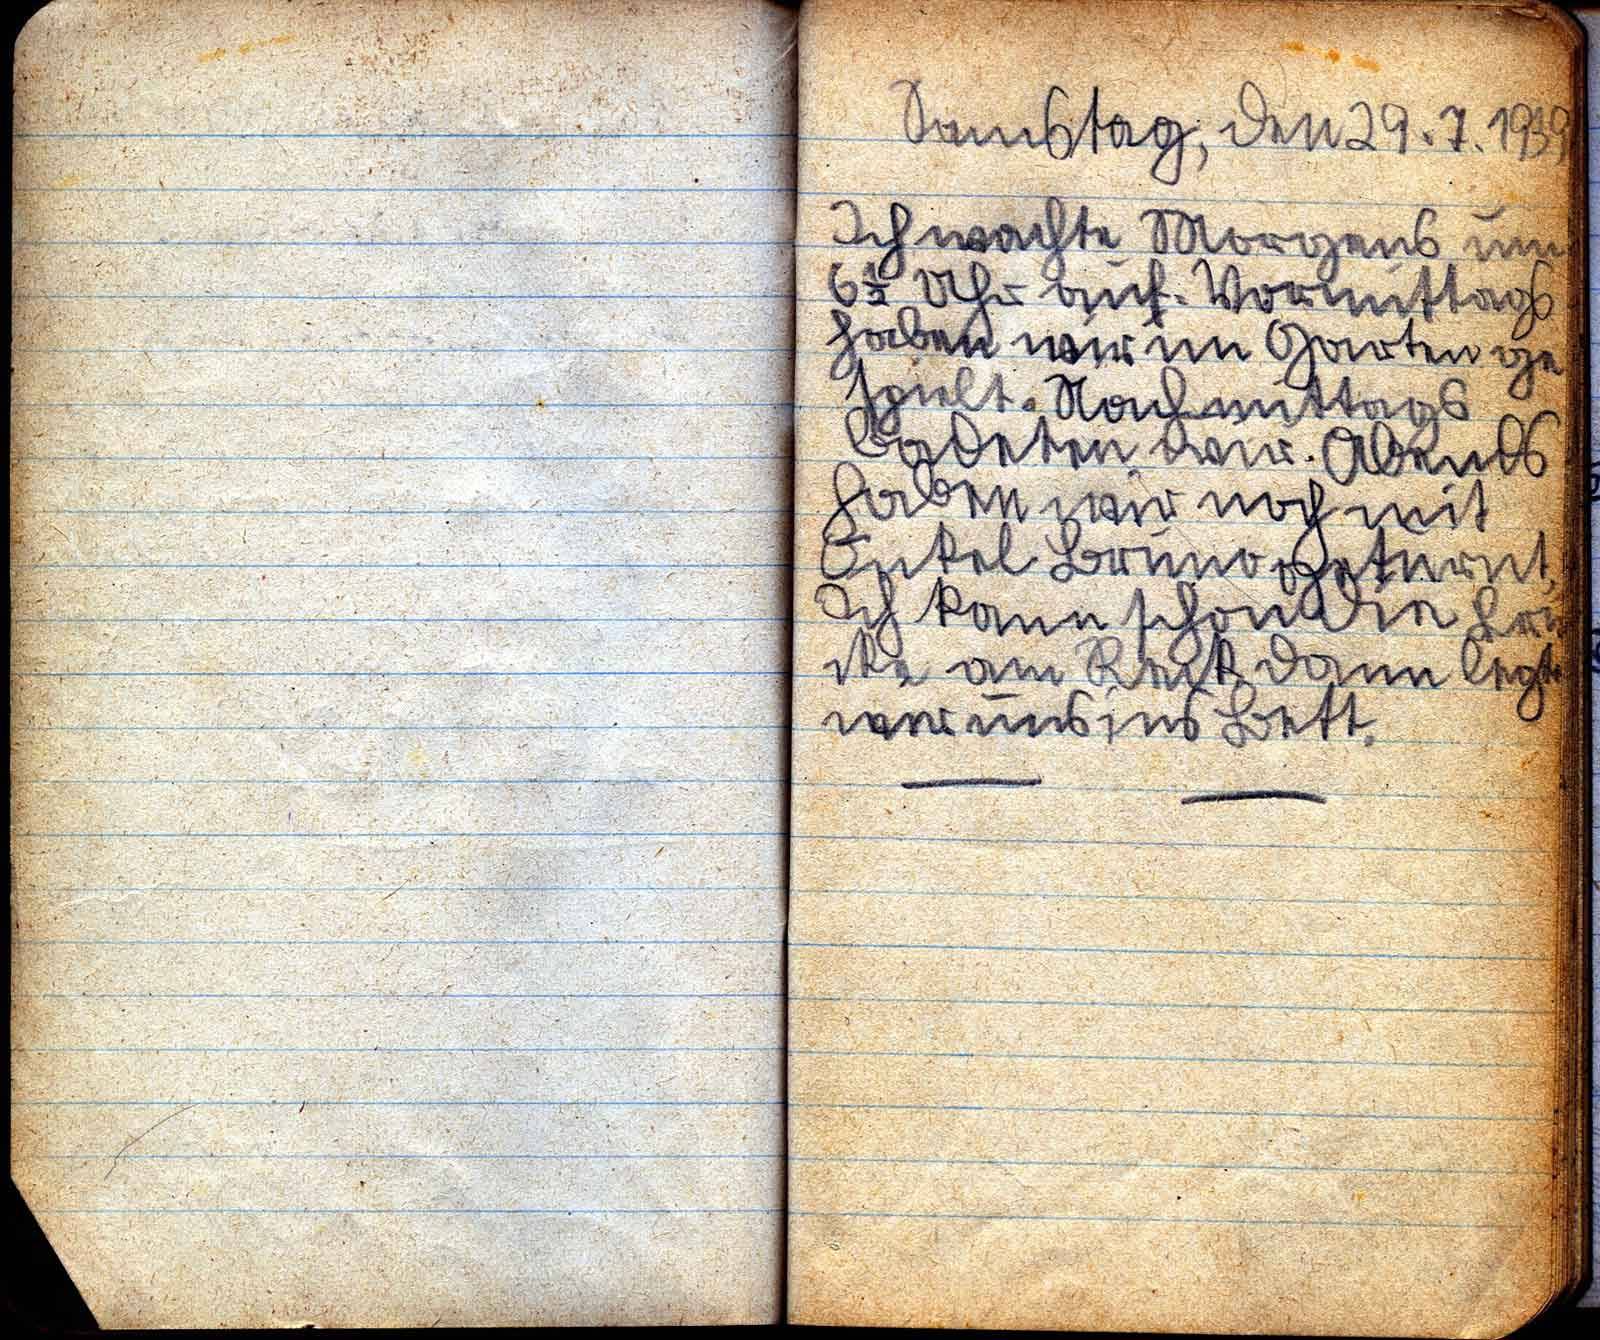 Samstag, den 29.7.1939
Ich wachte Morgens um
6½ Uhr auf. Vormittags
haben wir im Garten ge
spielt. Nachmittags
badeten wir. Abends
haben wir noch mit
Onkel Bruno geturnt,
Ich kann schon die
am Reck dann legt
wir uns ins Bett.